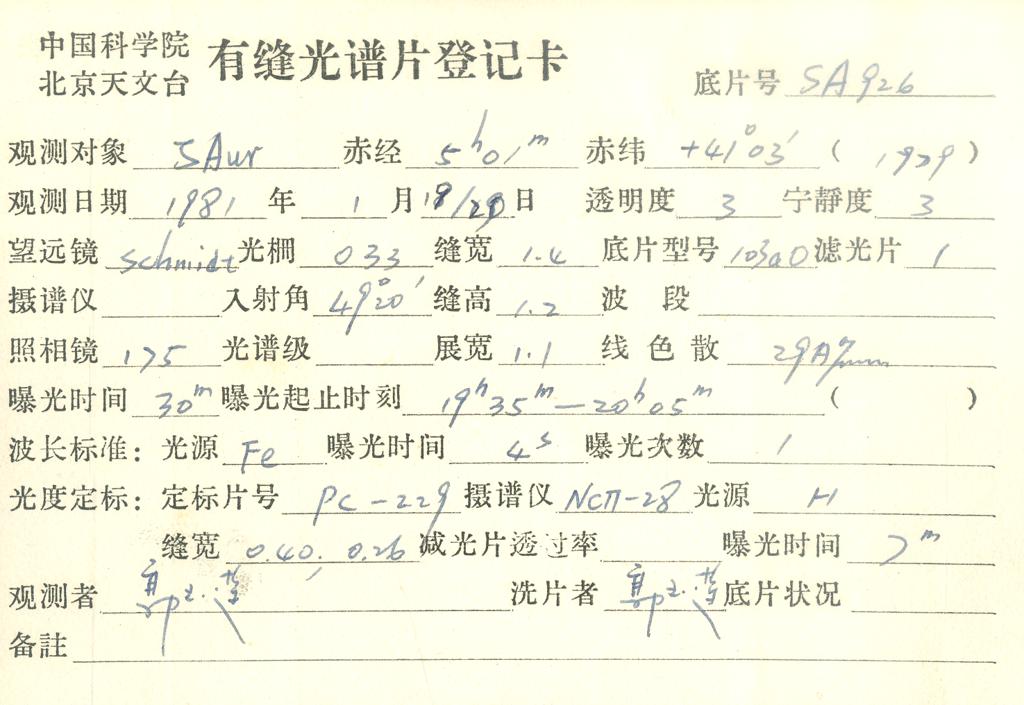 中国科学院
北京天文台 有缝光谱片登记卡 底片号 SA926
观测对象 SAur 赤经 5h01m 赤纬 +41°03′ ( 1979 )
观测日期 1981 年 1 月 19/20 日 透明度 3 宁静度 3
望远镜 schmidt 光栅 033 缝宽 1.4 底片型号 103aO 滤光片 1
摄谱仪 入射角 49°20′ 缝高 1.2 波段
照相镜 175 光谱级 展宽 1.1 线色散 29A/mm
曝光时间 30m 曝光起止时刻 19h35m—20h05m ( )
波长标准: 光源 Fe 曝光时间 4s 曝光次数 1
光度定标: 定标片号 PC-229 摄谱仪 NCП-28 光源 H
缝宽 0.40, 0.26 减光片透过率 曝光时间 7m
观测者 洗片者 底片状况
备註